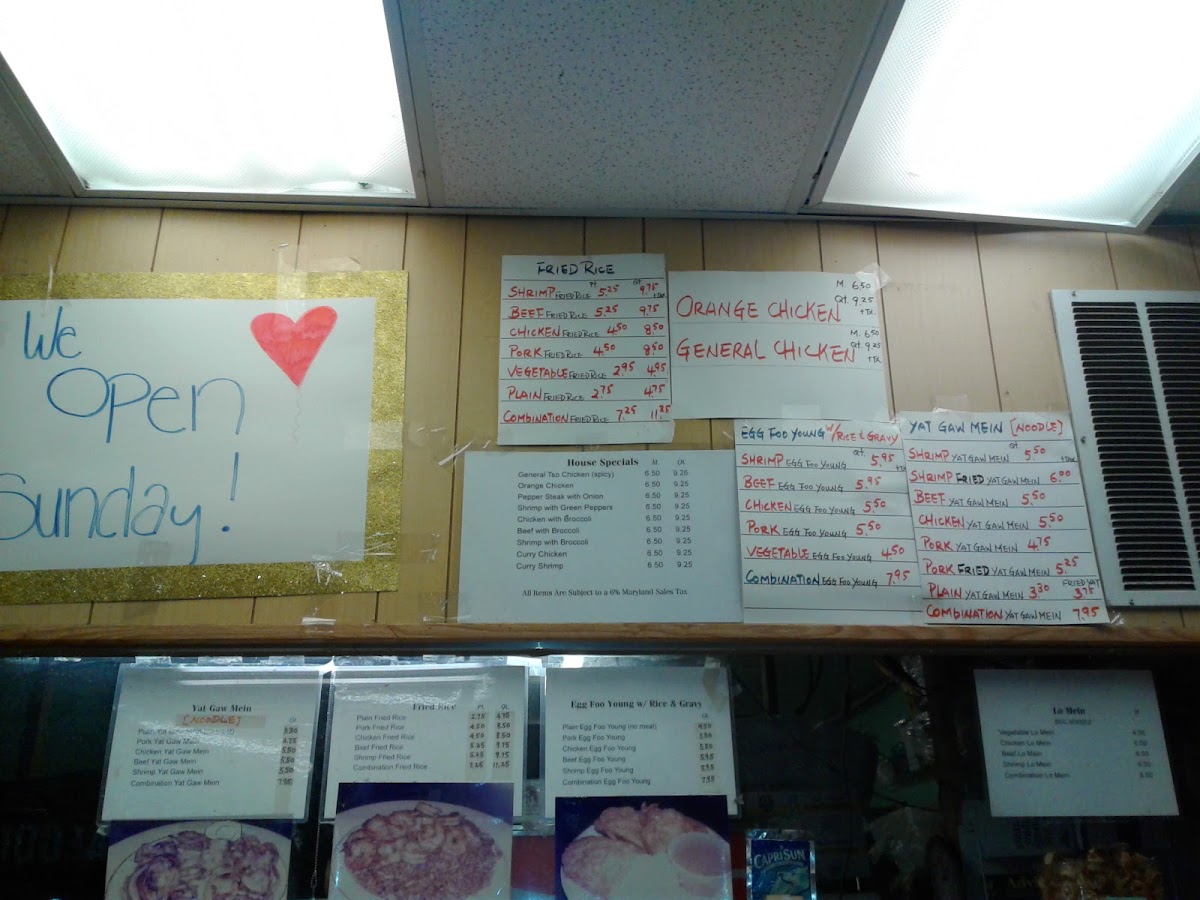 We
Open
Sunday!
FRIED RICE
Pt. Qt.
SHRIMP FRIED RICE 5.25 9.75
+TAX
BEEF FRIED RICE 5.25 9.75
CHICKEN FRIED RICE 4.50 8.50
PORK FRIED RICE 4.50 8.50
VEGETABLE FRIED RICE 2.95 4.95
PLAIN FRIED RICE 2.75 4.75
COMBINATION FRIED RICE 7.25 11.25
M. 6.50
ORANGE CHICKEN Qt. 9.25
M. 6.50
GENERAL CHICKEN Qt. 9.25
House Specials M. Qt.
General Tso Chicken (spicy) 6.50 9.25
Orange Chicken 6.50 9.25
Pepper Steak with Onion 6.50 9.25
Shrimp with Green Peppers 6.50 9.25
Chicken with Broccoli 6.50 9.25
Beef with Broccoli 6.50 9.25
Shrimp with Broccoli 6.50 9.25
Curry Chicken 6.50 9.25
Curry Shrimp 6.50 9.25
All Items Are Subject to a 6% Maryland Sales Tax
EGG FOO YOUNG W/ RICE & GRAVY
Qt.
SHRIMP EGG FOO YOUNG 5.95
BEEF EGG FOO YOUNG 5.95
CHICKEN EGG FOO YOUNG 5.50
PORK EGG FOO YOUNG 5.50
VEGETABLE EGG FOO YOUNG 4.50
COMBINATION EGG FOO YOUNG 7.95
YAT GAW MEIN [NOODLE]
Qt.
SHRIMP YAT GAW MEIN 5.50
SHRIMP FRIED YAT GAW MEIN 6.00
BEEF YAT GAW MEIN 5.50
CHICKEN YAT GAW MEIN 5.50
PORK YAT GAW MEIN 4.75
PORK FRIED YAT GAW MEIN 5.25
FRIED YAT
PLAIN YAT GAW MEIN 3.30 3.75
COMBINATION YAT GAW MEIN 7.95
Yat Gaw Mein
[NOODLE] Qt.
Plain Yat 3.30
Pork Yat Gaw Mein 4.75
Chicken Yat Gaw Mein 5.50
Beef Yat Gaw Mein 5.50
Shrimp Yat Gaw Mein 5.50
Combination Yat Gaw Mein
Fried Rice M. Qt.
Plain Fried Rice 2.75 4.75
Pork Fried Rice 4.50 8.50
Chicken Fried Rice 4.50 8.50
Beef Fried Rice 5.25 9.75
Shrimp Fried Rice 5.25 9.75
Combination Fried Rice 7.25 11.25
Egg Foo Young w/ Rice & Gravy
Qt.
Plain Egg Foo Young (no meat) 4.50
Pork Egg Foo Young 5.50
Chicken Egg Foo Young 5.50
Beef Egg Foo Young 5.95
Shrimp Egg Foo Young 5.95
Combination Egg Foo Young 7.95
Lo Mein
Vegetable Lo Mein
Chicken Lo Mein
Beef Lo Mein
Shrimp Lo Mein
Combination Lo Mein
CAPRI SUN